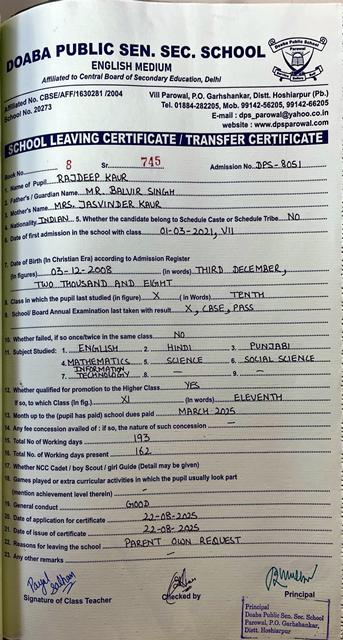 DOABA PUBLIC SEN. SEC. SCHOOL
ENGLISH MEDIUM
Affiliated to Central Board of Secondary Education, Delhi
Affiliated No. CBSE/AFF/1630281 /2004
School No. 20273
Vill Parowal, P.O. Garhshankar, Distt. Hoshiarpur (Pb.)
Tel. 01884-282205, Mob. 99142-56205, 99142-66205
E-mail : dps_parowal@yahoo.co.in
website : www.dpsparowal.com
SCHOOL LEAVING CERTIFICATE / TRANSFER CERTIFICATE
Book No. 8 Sr. 745 Admission No. DPS-8051
1. Name of Pupil RAJDEEP KAUR
2. Father's / Guardian Name MR. BALVIR SINGH
3. Mother's Name MRS. JASVINDER KAUR
4. Nationality INDIAN 5. Whether the candidate belong to Schedule Caste or Schedule Tribe NO
6. Date of first admission in the school with class 01-03-2021, VII
7. Date of Birth (In Christian Era) according to Admission Register
(In figures) 03-12-2008 (in words) THIRD DECEMBER,
TWO THOUSAND AND EIGHT
8. Class in which the pupil last studied (in figure) X (in Words) TENTH
9. School/ Board Annual Examination last taken with result X, CBSE, PASS
10. Whether failed, if so once/twice in the same class NO
11. Subject Studied : 1. ENGLISH 2. HINDI 3. PUNJABI
4. MATHEMATICS 5. SCIENCE 6. SOCIAL SCIENCE
7. INFORMATION TECHNOLOGY 8. — 9. —
12. Whether qualified for promotion to the Higher Class YES
If so, to which Class (in Fig.) XI (in Words) ELEVENTH
13. Month up to the (pupil has paid) school dues paid MARCH 2025
14. Any fee concession availed of : if so, the nature of such concession —
15. Total No of Working days 193
16. Total No. of Working days present 162
17. Whether NCC Cadet / boy Scout / girl Guide (Detail may be given)
18. Games played or extra curricular activities in which the pupil usually look part
(mention achievement level therein)
19. General conduct GOOD
20. Date of application for certificate 22-08-2025
21. Date of issue of certificate 22-08-2025
22. Reasons for leaving the school PARENT OWN REQUEST
23. Any other remarks —
Signature of Class Teacher Checked by Principal
Principal
Doaba Public Sen. Sec. School
Parowal, P.O. Garhshankar,
Distt. Hoshiarpur